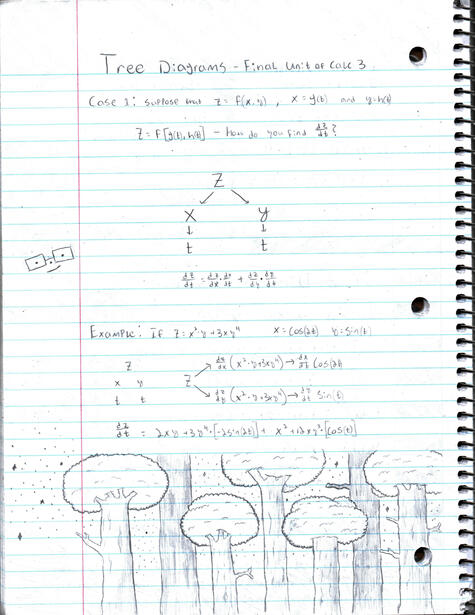 Tree Diagrams - Final Unit of Calc 3
Case 1: Suppose that z = f(x,y), x = g(t) and y = h(t)
z = f[g(t), h(t)] - How do you find dz/dt?
Z
x y
↓ ↓
t t
dz/dt = dz/dx · dx/dt + dz/dy · dy/dt
Example: If z = x²·y + 3xy⁴ x = cos(2t) y = sin(t)
z
x y
t t
z
dz/dx (x²·y + 3xy⁴) → dx/dt cos(2t)
dz/dy (x²·y + 3xy⁴) → dy/dt sin(t)
dz/dt = 2xy + 3y⁴·[-2sin(2t)] + x² + 12xy³·[cos(t)]